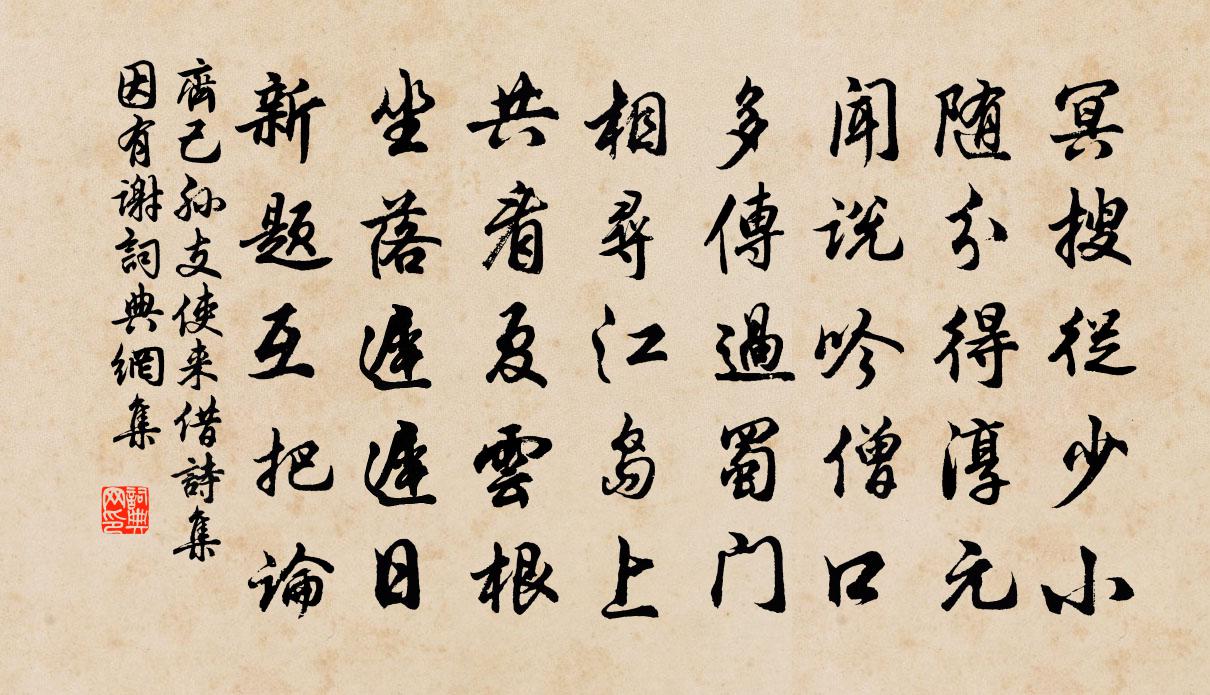 冥搜從少小
随分得淳元
闻说吟僧口
多傳過蜀门
相尋江島上
共看夏雲根
坐落遲遲日
新题互把論
齊己孫支使来借詩集
因有谢詞典網集
詞典网印